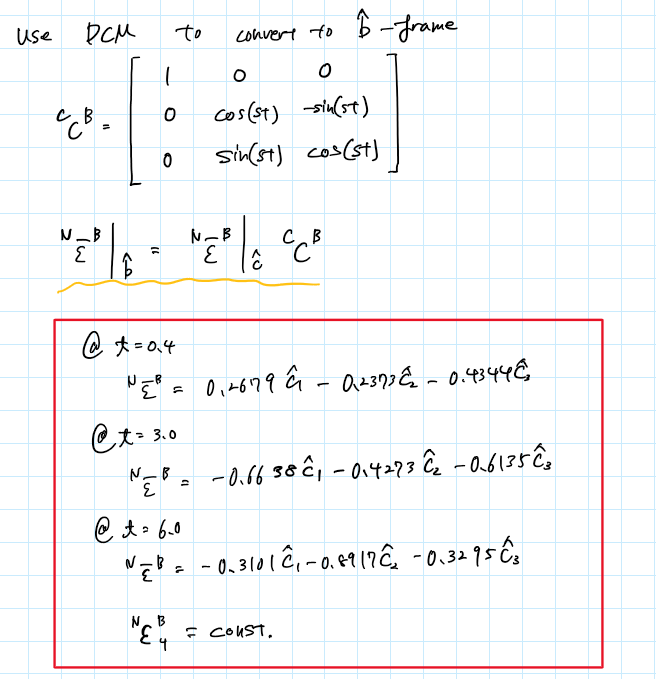 Use DCM to convert to b̂-frame
ᶜCᴮ = [ 1 0 0
0 cos(st) -sin(st)
0 sin(st) cos(st) ]
ᴺε̄ᴮ|b̂ = ᴺε̄ᴮ|ĉ ᶜCᴮ
@ t=0.4
ᴺε̄ᴮ = 0.2679 ĉ₁ - 0.2373 ĉ₂ - 0.4344 ĉ₃
@ t= 3.0
ᴺε̄ᴮ = -0.6638 ĉ₁ - 0.4273 ĉ₂ - 0.6135 ĉ₃
@ t= 6.0
ᴺε̄ᴮ = -0.3101 ĉ₁ - 0.8917 ĉ₂ - 0.3295 ĉ₃
ᴺε₄ᴮ = const.